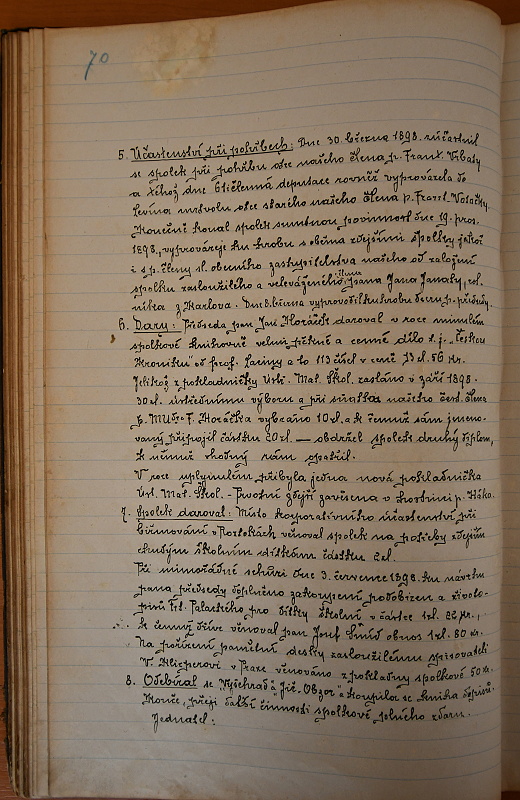 70
5. Účastenství při pohřbech: Dne 30. března 1898. súčastnil
se spolek při pohřbu otce našeho člena p. Frant. Vrbaty
a téhož dne 6tičlenná deputace rovněž vyprovázela do
Levína mrtvolu otce starého našeho člena p. Frant.
Konečně konal spolek smutnou povinnost dne 19. pros.
1898., vyprovázeje ku hrobu s oběma zdejšími spolky jakož
i s p. členy sl. obecního zastupitelstva našeho od založení
spolku zasloužilého a velevázeného člena pana Jana Janaty, rol-
níka z Karlova. Dne 8. března vyprovodil ku hrobu
6. Dary: Předseda pan Jan Horáček daroval v roce minulém
spolkové knihovně velmi pěkné a cenné dílo t. j. „Českou
Kroniku" od prof. a to 113 čísel v ceně 13 zl. 56 kr.
Jelikož z pokladničky Ústř. Mat. Škol. zasláno v září 1898.
30 zl. ústřednímu výboru a při sňatku našeho čest. člena
p. MUDra F. Horáčka vybráno 10 zl. a k čemuž sám jmeno-
vaný připojil částku 20 zl. — obdržel spolek druhý diplom,
k němuž vhodný rám opatřil.
V roce uplynulém přibyla jedna nová pokladnička
Úst. Mat. Škol. - Prvotní zdejší zavěšena v hostinci p.
7. Spolek daroval: Místo korporativního účastenství při
biřmování v Roztokách věnoval spolek na potřeby zdejším
chudým školním dítkám částku 2 zl.
Při mimořádné schůzi dne 3. července 1898. ku návrhu
pana předsedy doplněno zakoupení podobizen a životo-
pisů Fr. Palackého pro dítky školní v částce 1 zl. 82 kr.,
k čemuž dříve věnoval pan Josef Šmíd obnos 1 zl. 80 kr.
Na pořízení pamětní desky zasloužilému spisovateli
V. Kliceperovi v Praze věnováno z pokladny spolkové 50 kr.
8. Odebíral se „Vyšehrad" a „Jič. Obzor" a koupila se kniha dopisů.
Konče, přeji další činnosti spolkové plného zdaru.
Jednatel: